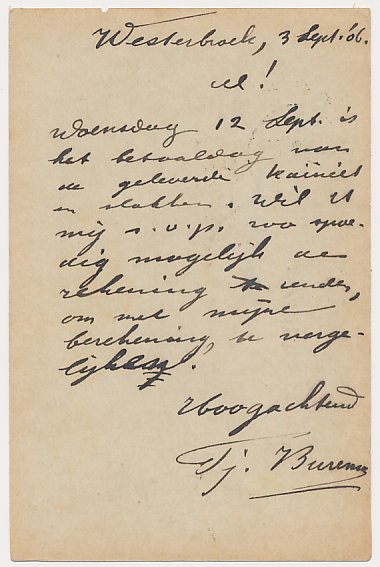 Westerbroek, 3 Sept. '06.
M!
Woensdag 12 Sept. is
het betaaldag van
de geleverde kaïniet
en slakken. Wil U
mij s.v.p. zoo spoe-
dig mogelijk de
rekening te zenden,
om met mijne
berekening te verge-
lijken.
Hoogachtend
Tj. Burema